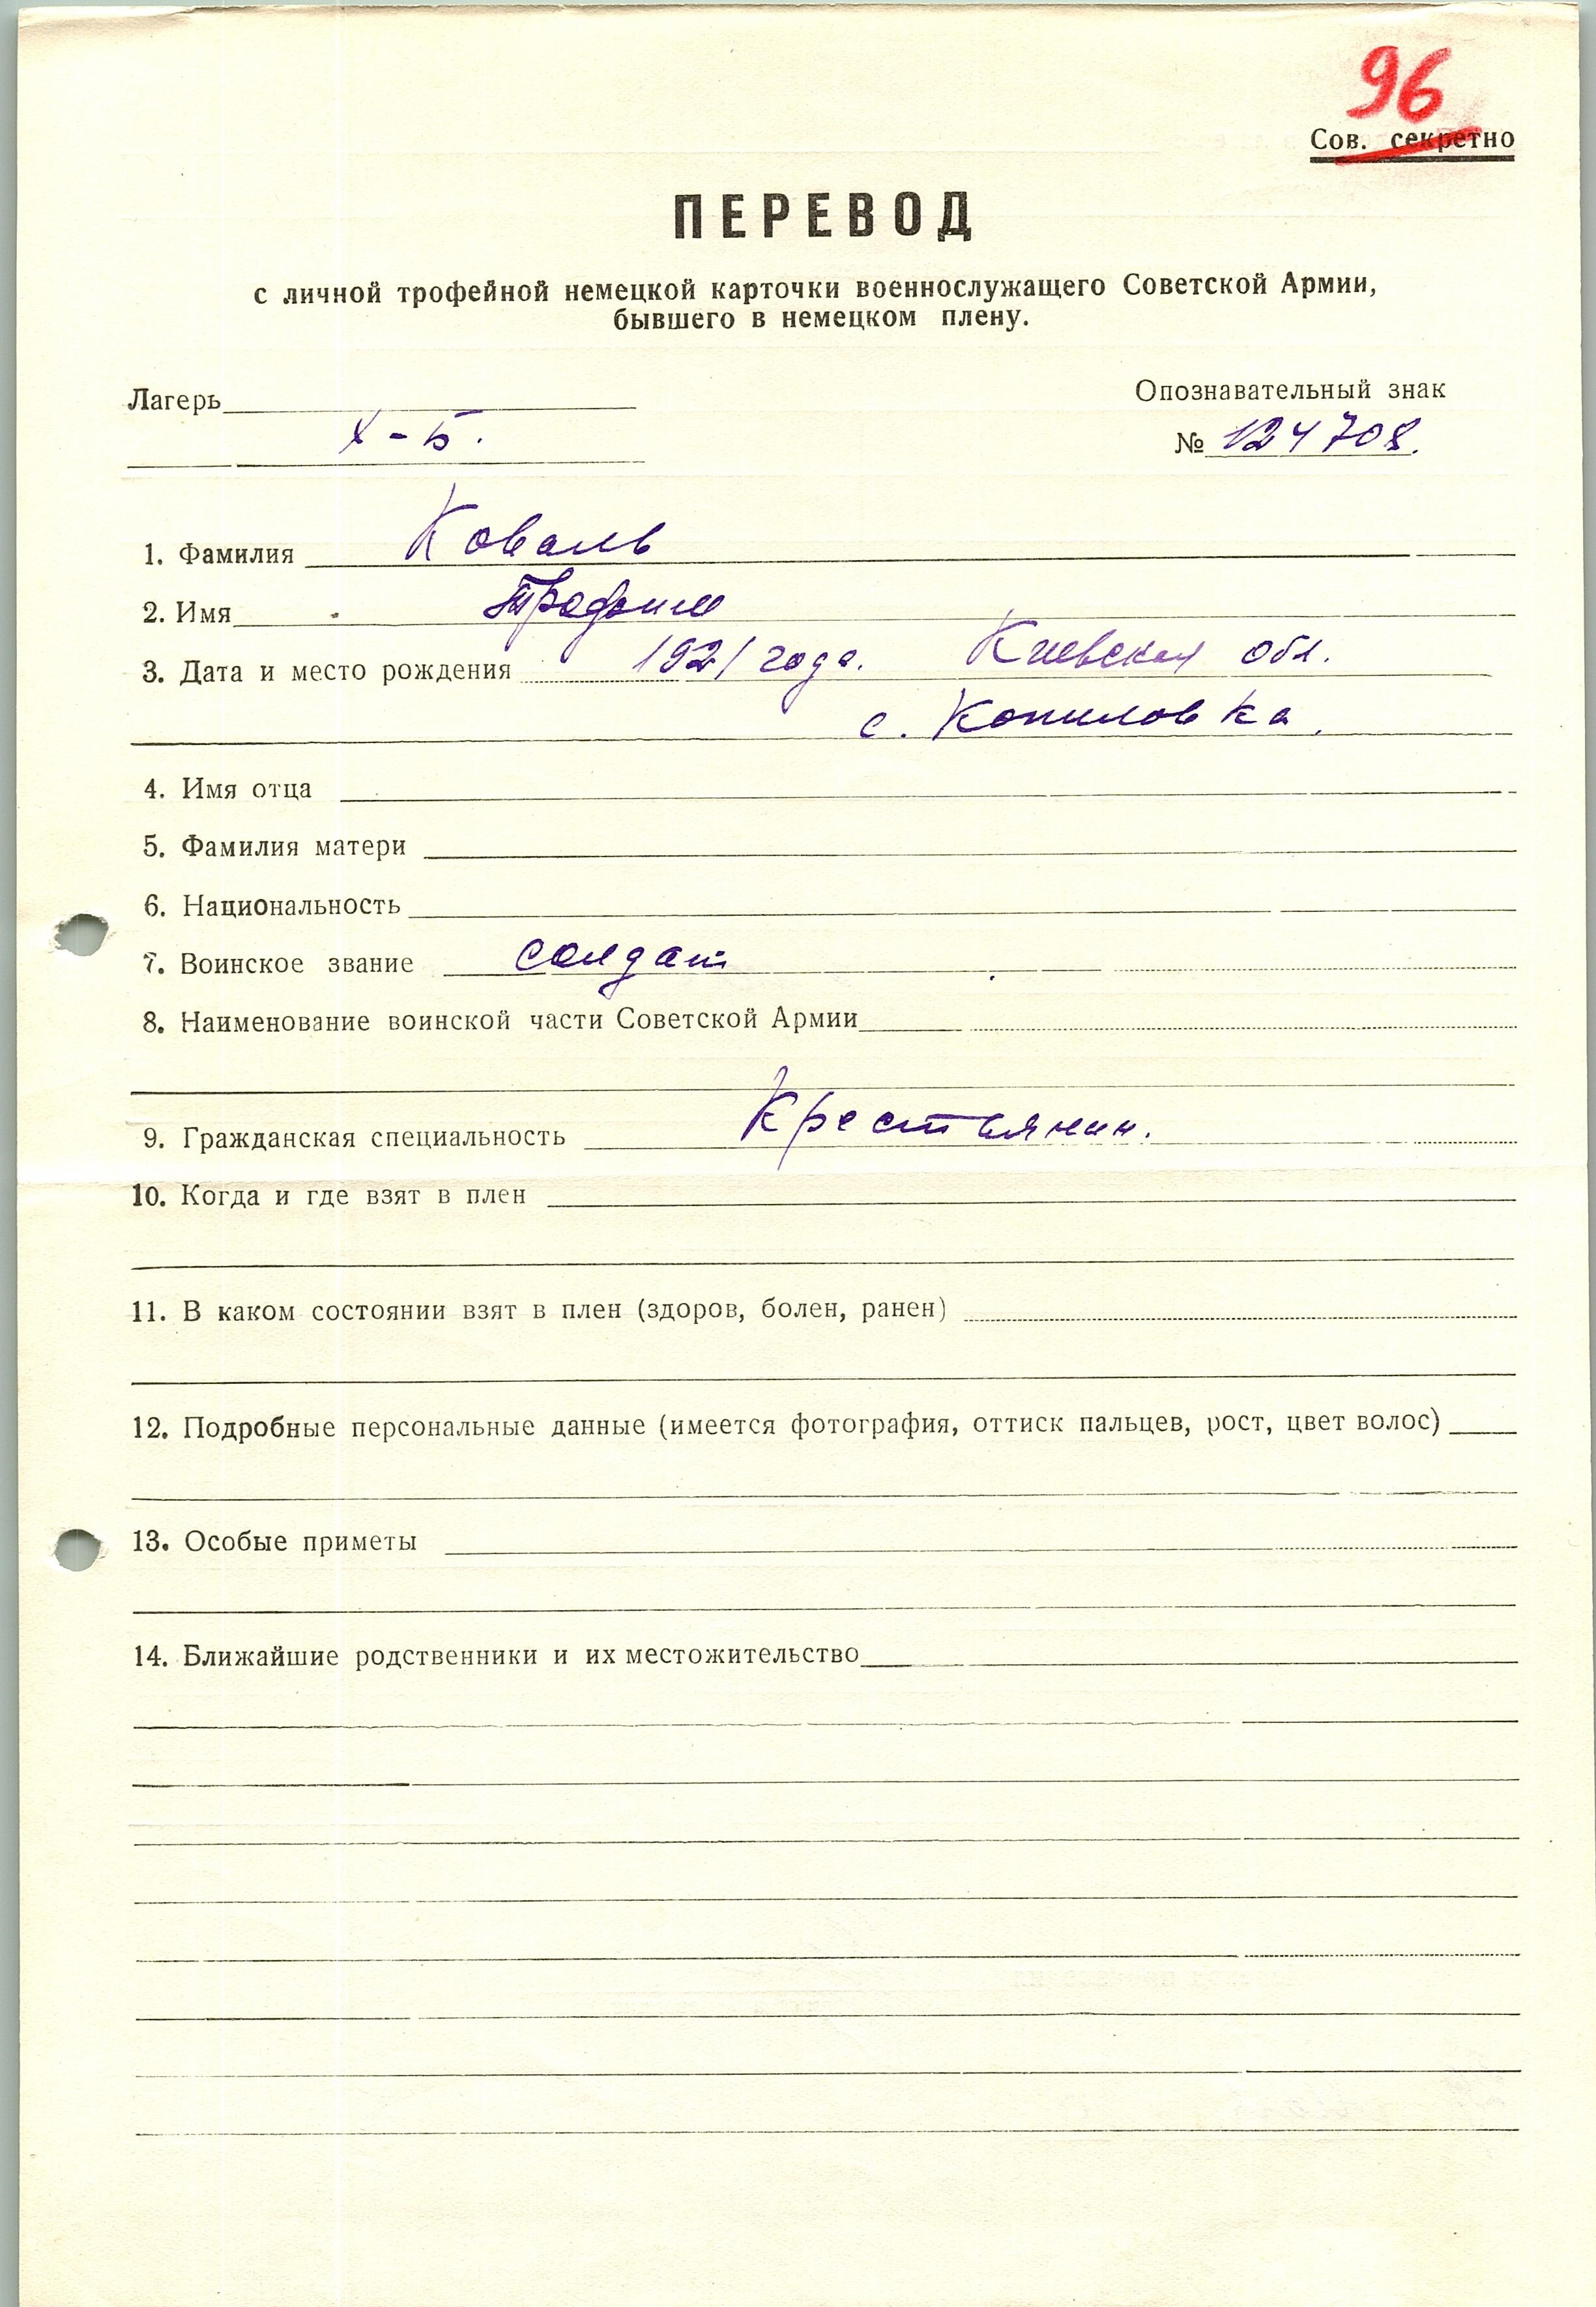 96
Сов. секретно
ПЕРЕВОД
с личной трофейной немецкой карточки военнослужащего Советской Армии,
бывшего в немецком плену.
Лагерь
Х-Б.
Опознавательный знак
№ 124708.
1. Фамилия Коваль
2. Имя
3. Дата и место рождения 1921 года. Киевская обл.
с. Копиловка.
4. Имя отца
5. Фамилия матери
6. Национальность
7. Воинское звание солдат
8. Наименование воинской части Советской Армии
9. Гражданская специальность Крестьянин.
10. Когда и где взят в плен
11. В каком состоянии взят в плен (здоров, болен, ранен)
12. Подробные персональные данные (имеется фотография, оттиск пальцев, рост, цвет волос)
13. Особые приметы
14. Ближайшие родственники и их местожительство